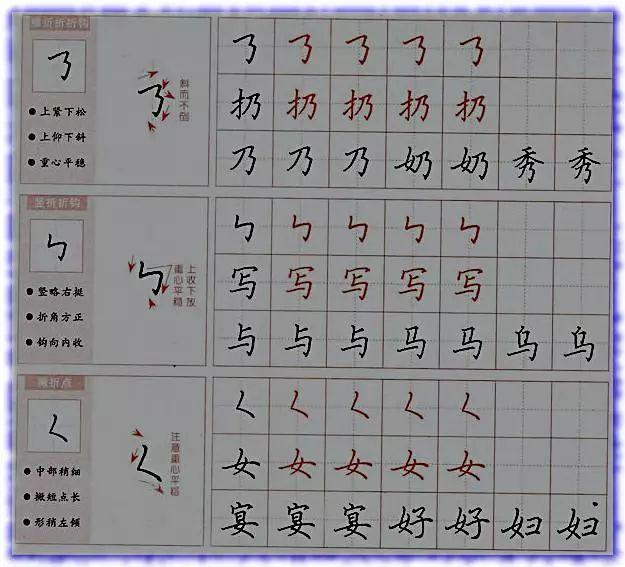 横折折折钩
㇡
● 上紧下松
● 上仰下斜
● 重心平稳
㇡
斜而不倒
㇡ ㇡ ㇡ ㇡ ㇡
扔 扔 扔 扔 扔
乃 乃 乃 奶 奶 秀 秀
竖折折钩
㇉
● 竖略右挺
● 折角方正
● 钩向内收
㇉
上收下放
重心平稳
㇉ ㇉ ㇉ ㇉ ㇉
写 写 写 写 写
与 与 与 马 马 乌 乌
撇折点
㇛
● 中部稍细
● 撇短点长
● 形稍左倾
㇛
注意重心平稳
㇛ ㇛ ㇛ ㇛ ㇛
女 女 女 女 女
宴 宴 宴 好 好 妇 妇